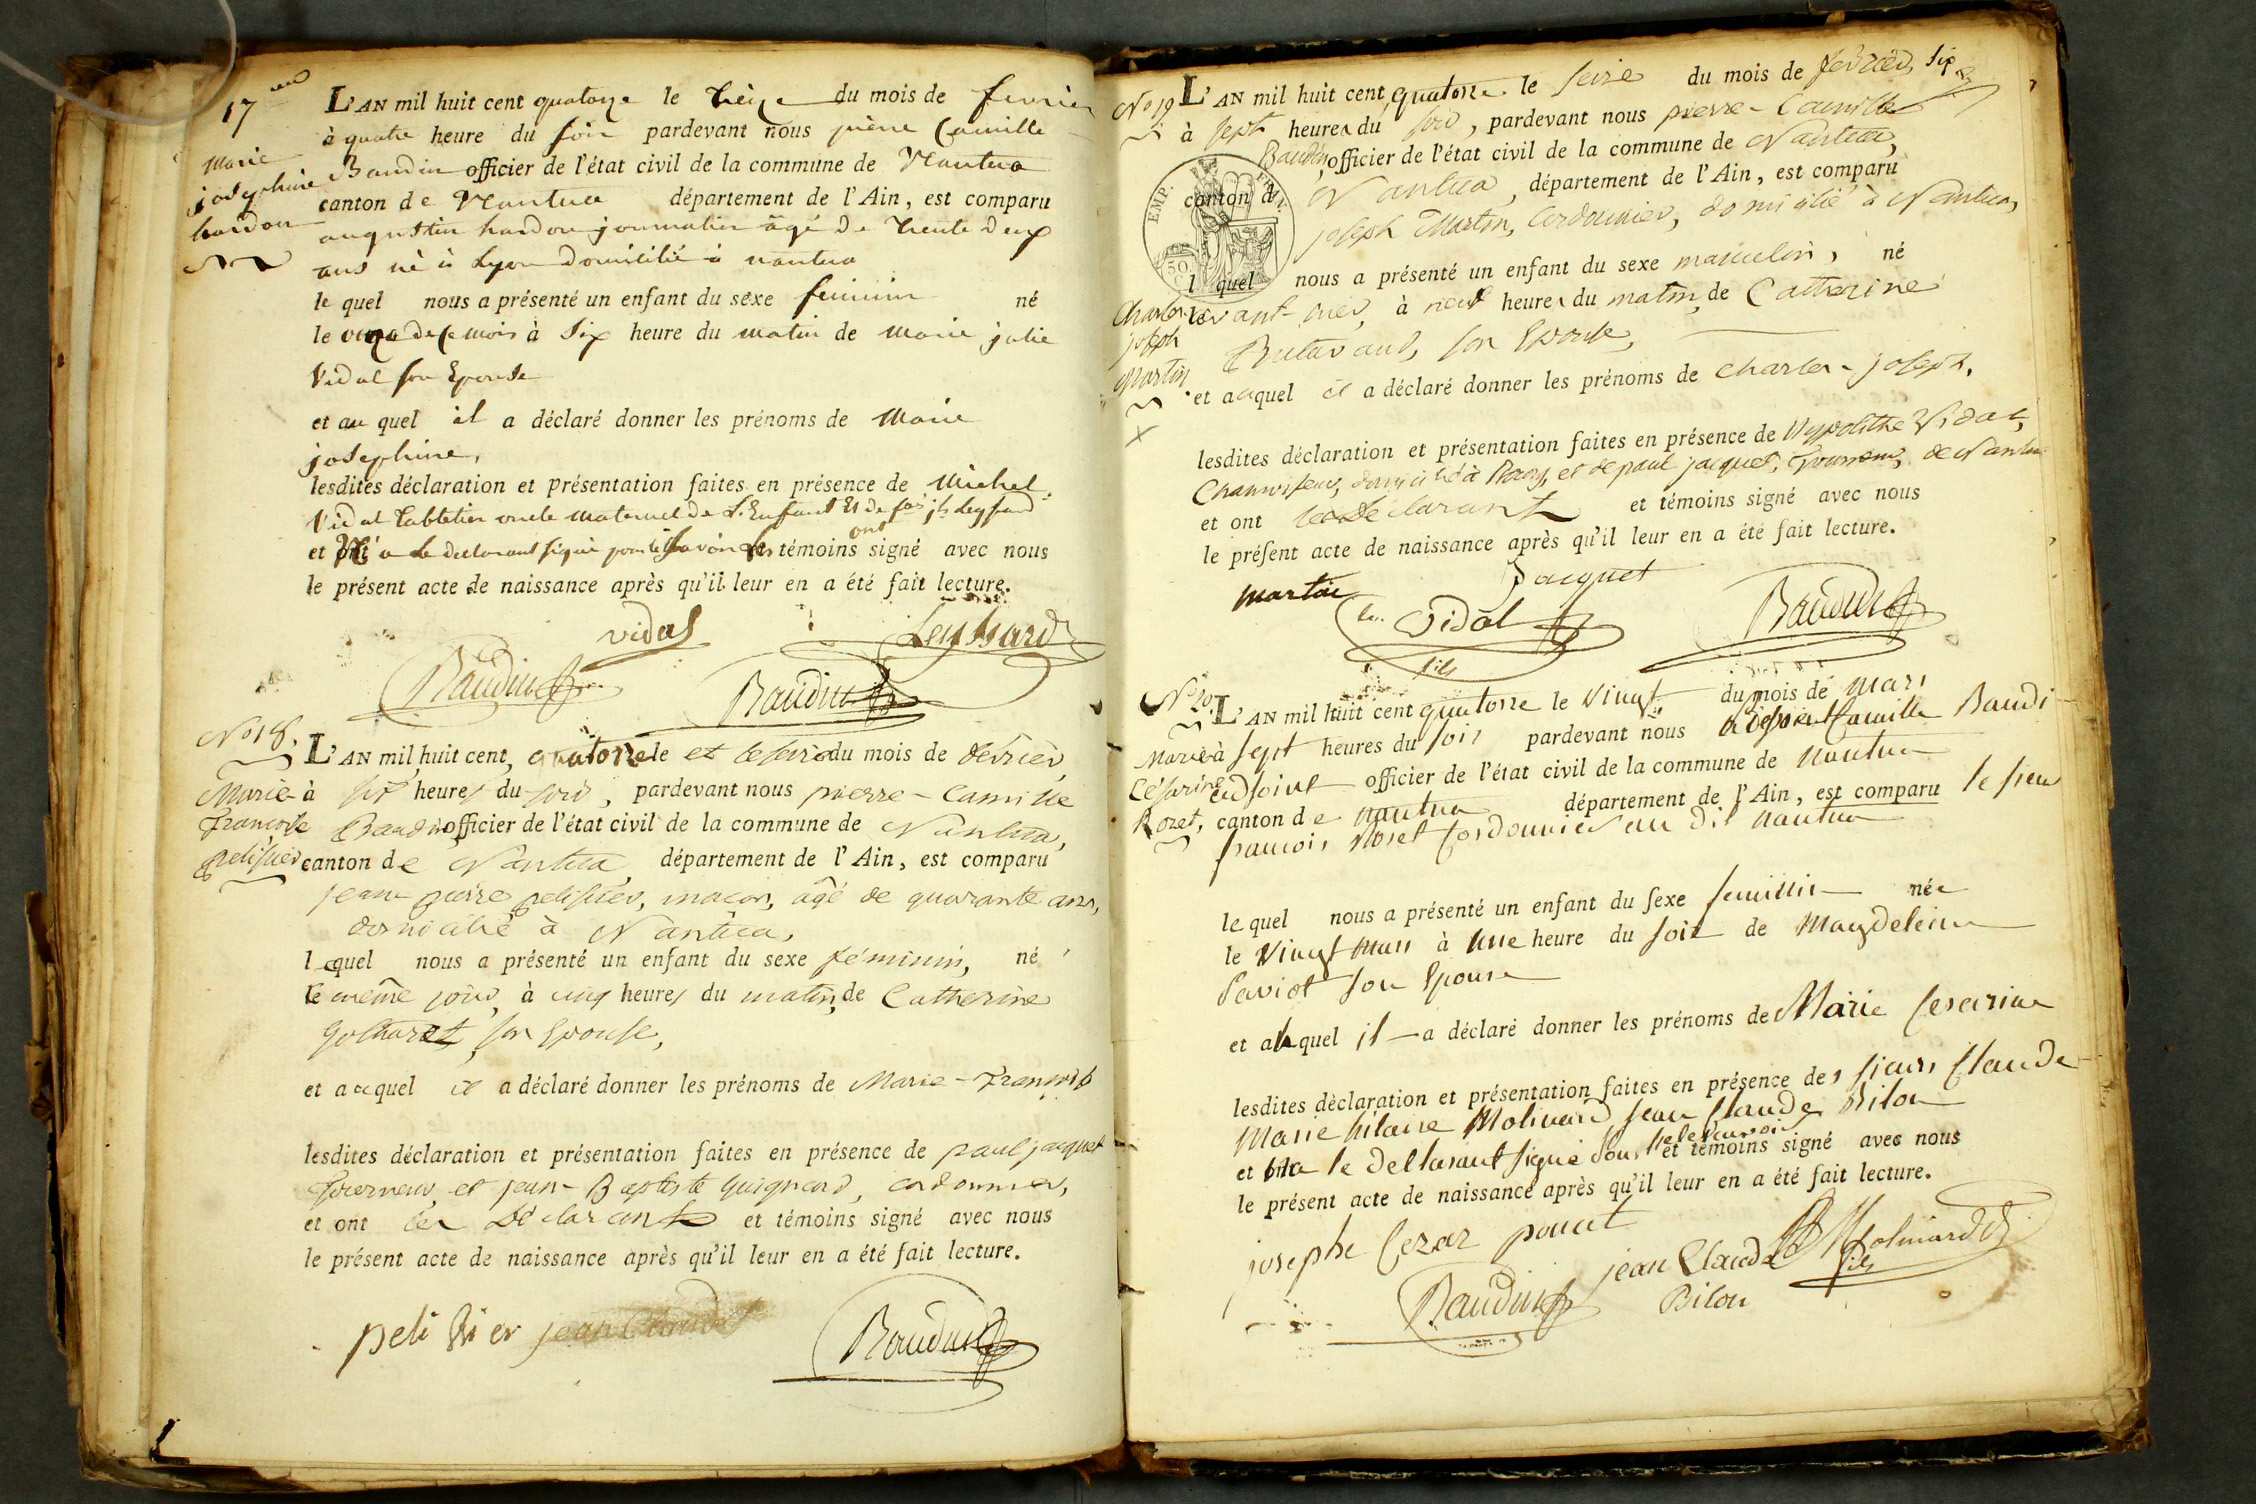 17
Marie
josephine
hardon
L'AN mil huit cent quatorze le treize du mois de fevrier
à quatre heure du soir pardevant nous pierre Camille
Baudin officier de l'état civil de la commune de Nantua
canton de Nantua département de l'Ain, est comparu
augustin hardon journalier âgé de trente deux
ans né à Lyon domicilié à nantua
le quel nous a présenté un enfant du sexe feminin né
le onze de ce mois à six heure du matin de marie julie
Vidal son Epouse
et au quel il a déclaré donner les prénoms de Marie
josephine,
lesdites déclaration et présentation faites en présence de Michel
Vidal tabletier oncle maternel de L'Enfant Et de
et n'a le declarant signé pour ne savoir les témoins ont signé avec nous
le présent acte de naissance après qu'il leur en a été fait lecture.
vidal Leyssard
Baudin Baudin
No 18.
Marie
Françoise
pelissier
L'AN mil huit cent quatorze le et le seize du mois de fevrier,
à six heures du soir, pardevant nous pierre-Camille
Baudin officier de l'état civil de la commune de Nantua,
canton de Nantua, département de l'Ain, est comparu
jean pierre pelissier, maçon, âgé de quarante ans,
domicilié à Nantua,
lequel nous a présenté un enfant du sexe féminin, né
le même jour, à cinq heures du matin, de Catherine
son Epouse,
et auquel il a déclaré donner les prénoms de Marie-Françoise
lesdites déclaration et présentation faites en présence de paul jacquet
Tourneur, et jean-Baptiste Guignard, cordonnier,
et ont les Déclarant et témoins signé avec nous
le présent acte de naissance après qu'il leur en a été fait lecture.
pelissier jean Claude Baudin
No 19
L'AN mil huit cent quatorze le seize du mois de fevrier, six
à sept heures du soir, pardevant nous pierre-Camille
Baudin, officier de l'état civil de la commune de Nantua,
canton de Nantua, département de l'Ain, est comparu
joseph Martin, Cordonnier, domicilié à Nantua,
EMP. 50 C.
lequel nous a présenté un enfant du sexe masculin, né
Charles
joseph
Martin
avant-hier, à neuf heures du matin, de Catherine
son Epouse,
et auquel il a déclaré donner les prénoms de Charles-joseph,
lesdites déclaration et présentation faites en présence de Hypolithe Vidal,
domicilié à et de paul jacquet, Tourneur, de Nantua
et ont les Déclarant et témoins signé avec nous
le présent acte de naissance après qu'il leur en a été fait lecture.
martin Jacquet
Vidal fils Baudin
No 20.
Marie
Césarine
Rozet,
L'AN mil huit cent quatorze le vingt du mois de mars
à sept heures du soir pardevant nous Camille Baudi
adjoint officier de l'état civil de la commune de nantua
canton de nantua département de l'Ain, est comparu le sieur
francois Roset Cordonnier au dit nantua
lequel nous a présenté un enfant du sexe feminin née
le vingt mars à une heure du soir de Magdeleine
Paviot son Epouse
et auquel il a déclaré donner les prénoms de Marie Cesarine
lesdites déclaration et présentation faites en présence des sieurs Claude
Marie hilaire Molinard jean Claude Bilon
et n'a le declarant signé pour ne le savoir et témoins signé avec nous
le présent acte de naissance après qu'il leur en a été fait lecture.
josephe Cezar poncet jean Claude Molinard fils
Baudin Bilon